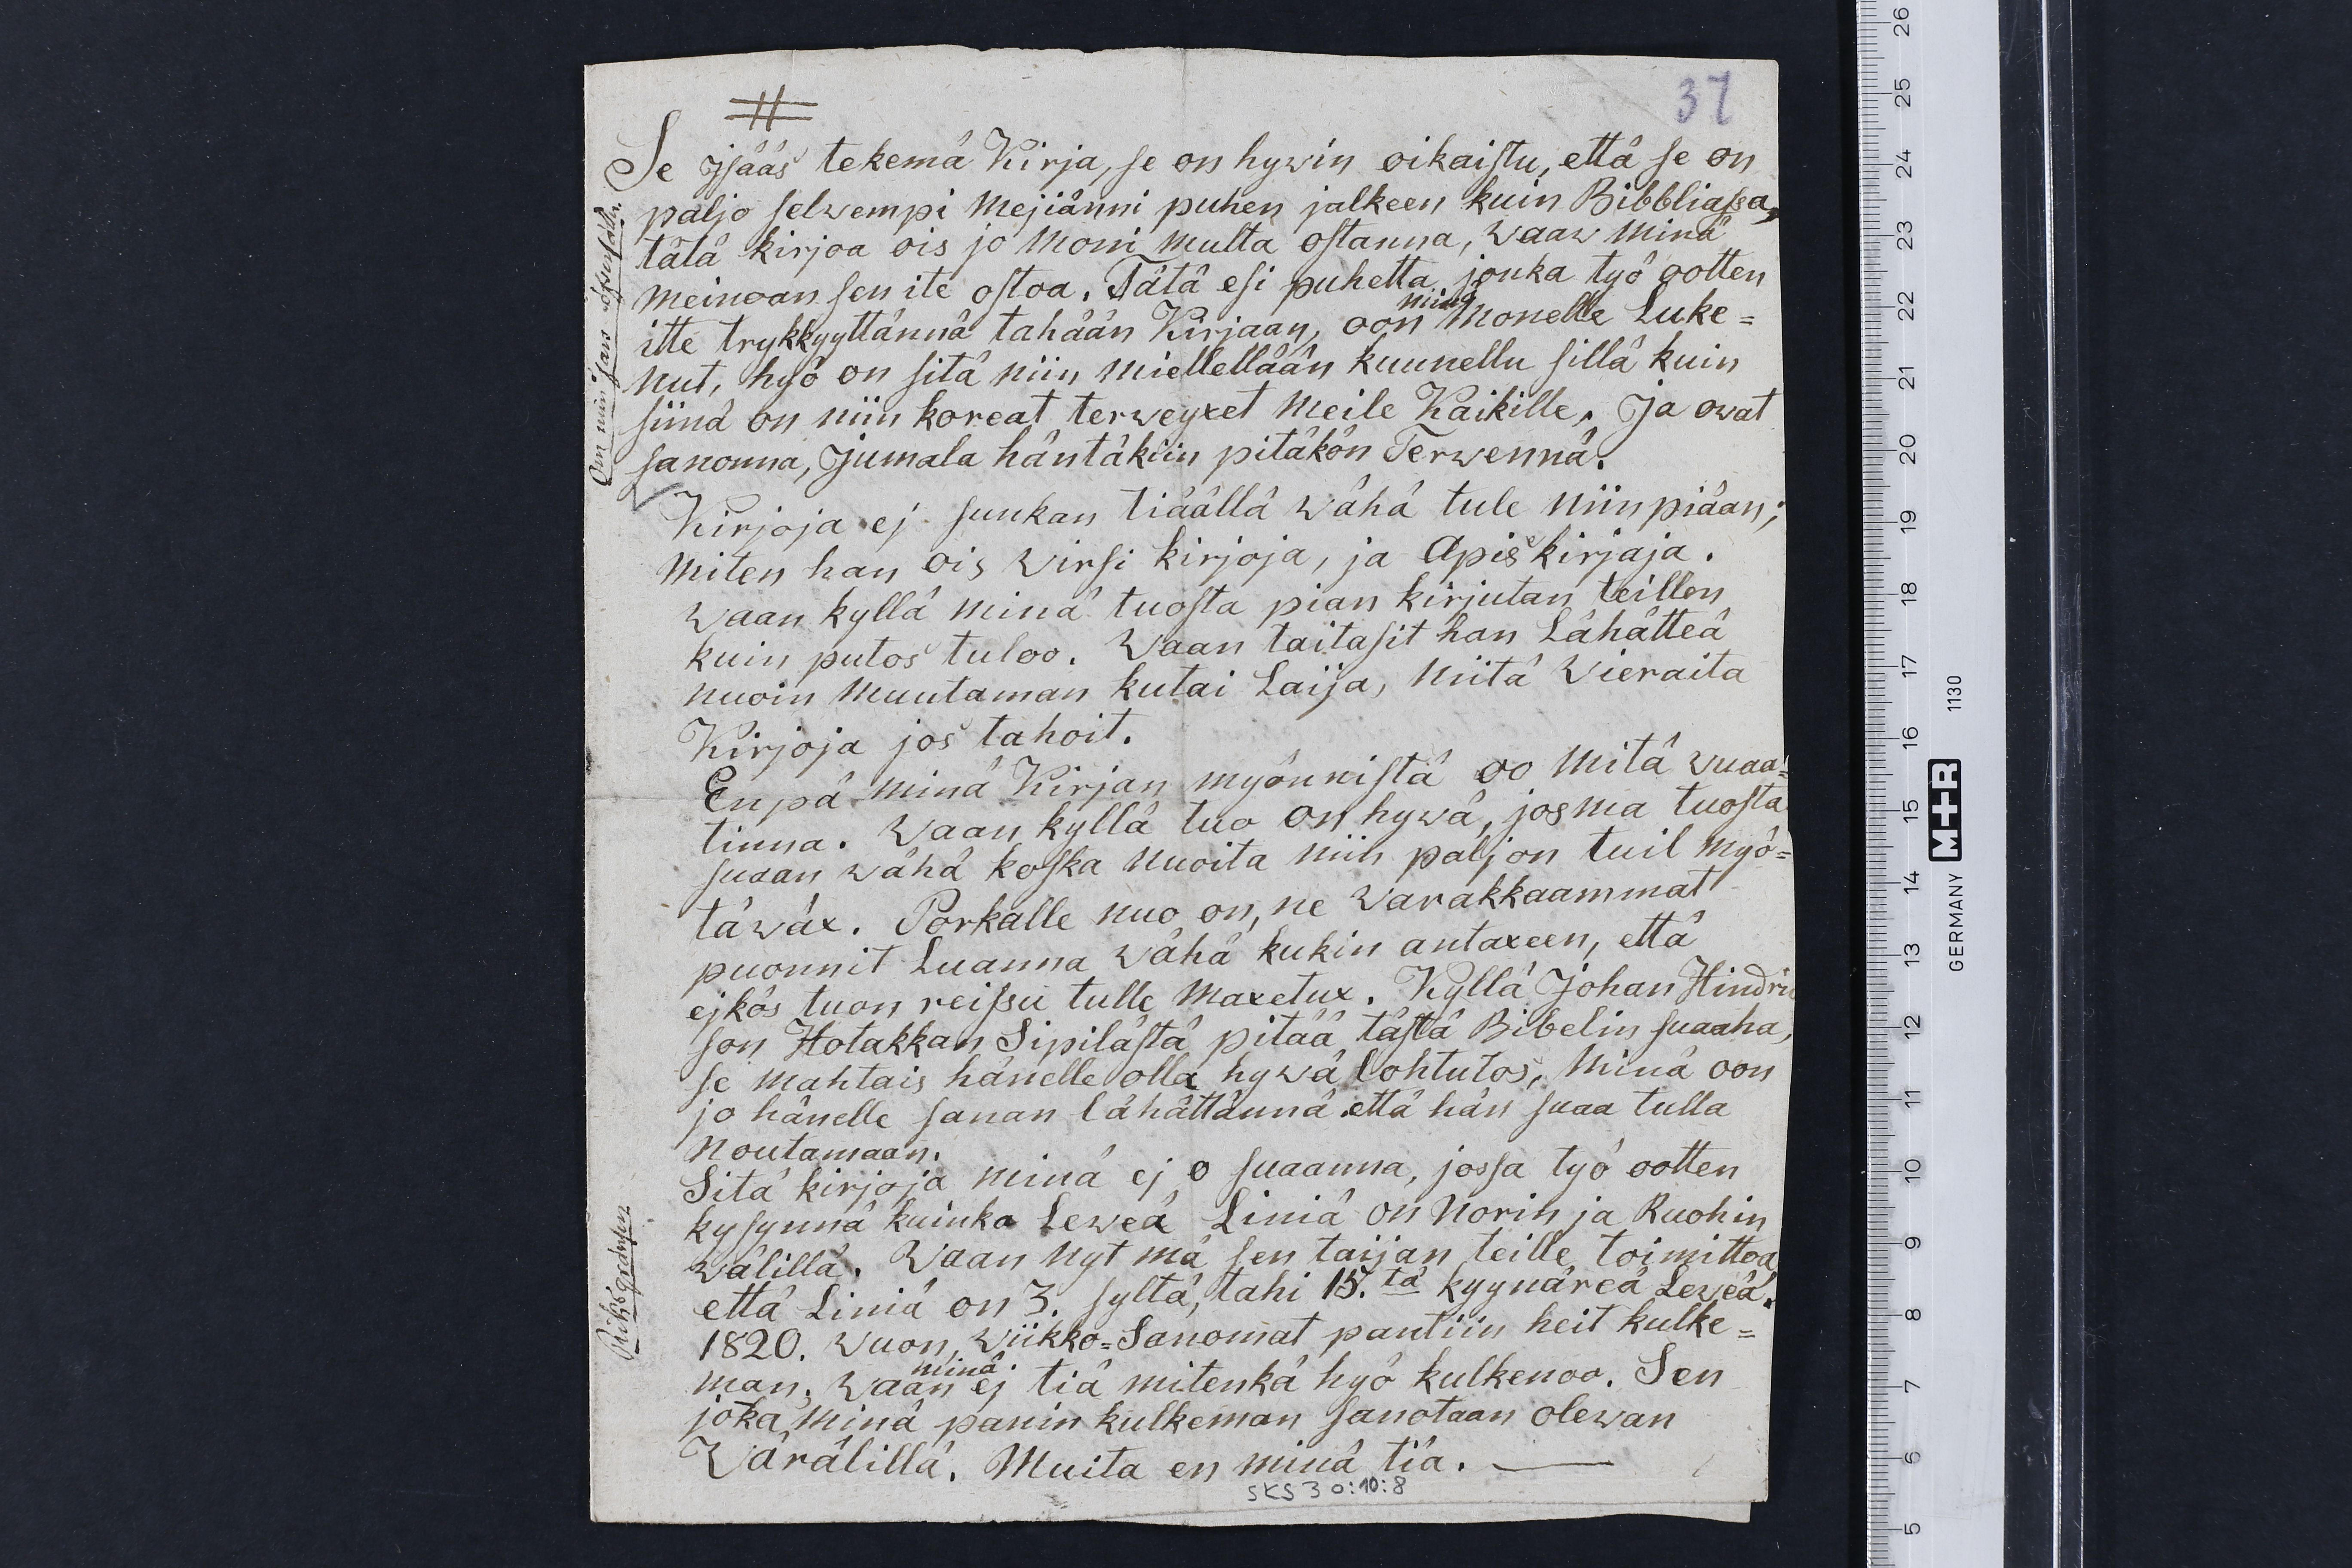 37
Se Jsääs tekemä Kirja, se on hywin oikaistu, että se on
paljo selwempi Mejiänni puhen jalkeen kuin Bibbliassa,
tätä kirjoa ois jo Moni Multa ostanna, waaw Minä
Meinoan sen ite ostoa. Tätä esi puhetta jonka työ ootten
itte trykkyyttännä tahään Kirjaan, oon minä Monelle Luke=
nut, hyö on sitä niin Miellellään kuunellu sillä kuin
siinä on niin koreat terweyxet Meile Kaikille. Ja owat
sanonna, Jumala häntäkiin pitäkön Terwennä.
Om min fars
Kirjoja ej suukan tiäällä wähä tule Niinpiäan;
Miten han ois Wirsi kirjoja, ja Apis kirjaja.
Waan kyllä Minä tuosta pian kirjutan teillen
kuin putos tuloo. Waan taitasit han Lähätteä
nuoin Muutaman kutai Laija, Niitä Vieraita
Kirjoja jos tahoit.
Enpä Minä Kirjan myönnistä oo Mitä wuaa=
tinna. Waan kyllä tuo on hywä, jos ma tuosta
suaan wähä koska Nuoita niin paljon tuil myö=
täwäx. Porkalle nuo on, ne Warakkaammat
puonnit Luanna Wähä kukin antaxeen, että
ejkös tuon reissu tulle Maxetux. Kyllä Johan Hindri
son Hotakkan Sipilästä pitää tästä Bibelin suaaha,
se Mahtais hänelle olla hywä lohtutos, Minä oon
jo hänelle sanan lähättännä että hän suaa tulla
Noutamaan.
Sitä kirjoja Minä ej o suaanna, jossa työ ootten
kysynnä kuinka Leweä Liniä on Norin ja Ruohin
wälillä. Waan Nyt mä sen taijan teille toimittoa
että Liniä on 3. syltä, tahi 15.tä kyynäreä Leweä.
Riks gränsen
1820. Wuon, Wiikko=Sanomat pantiin heit kulke=
man, Waan minä ej tiä mitenkä hyö kulkenoo. Sen
joka Minä panin kulkeman sanotaan olewan
Wärälillä. Muita en minä tiä.
SKS 3 o:10:8
GERMANY M+R 1130
26
25
24
23
22
21
20
19
18
17
16
15
14
13
12
11
10
9
8
7
6
5